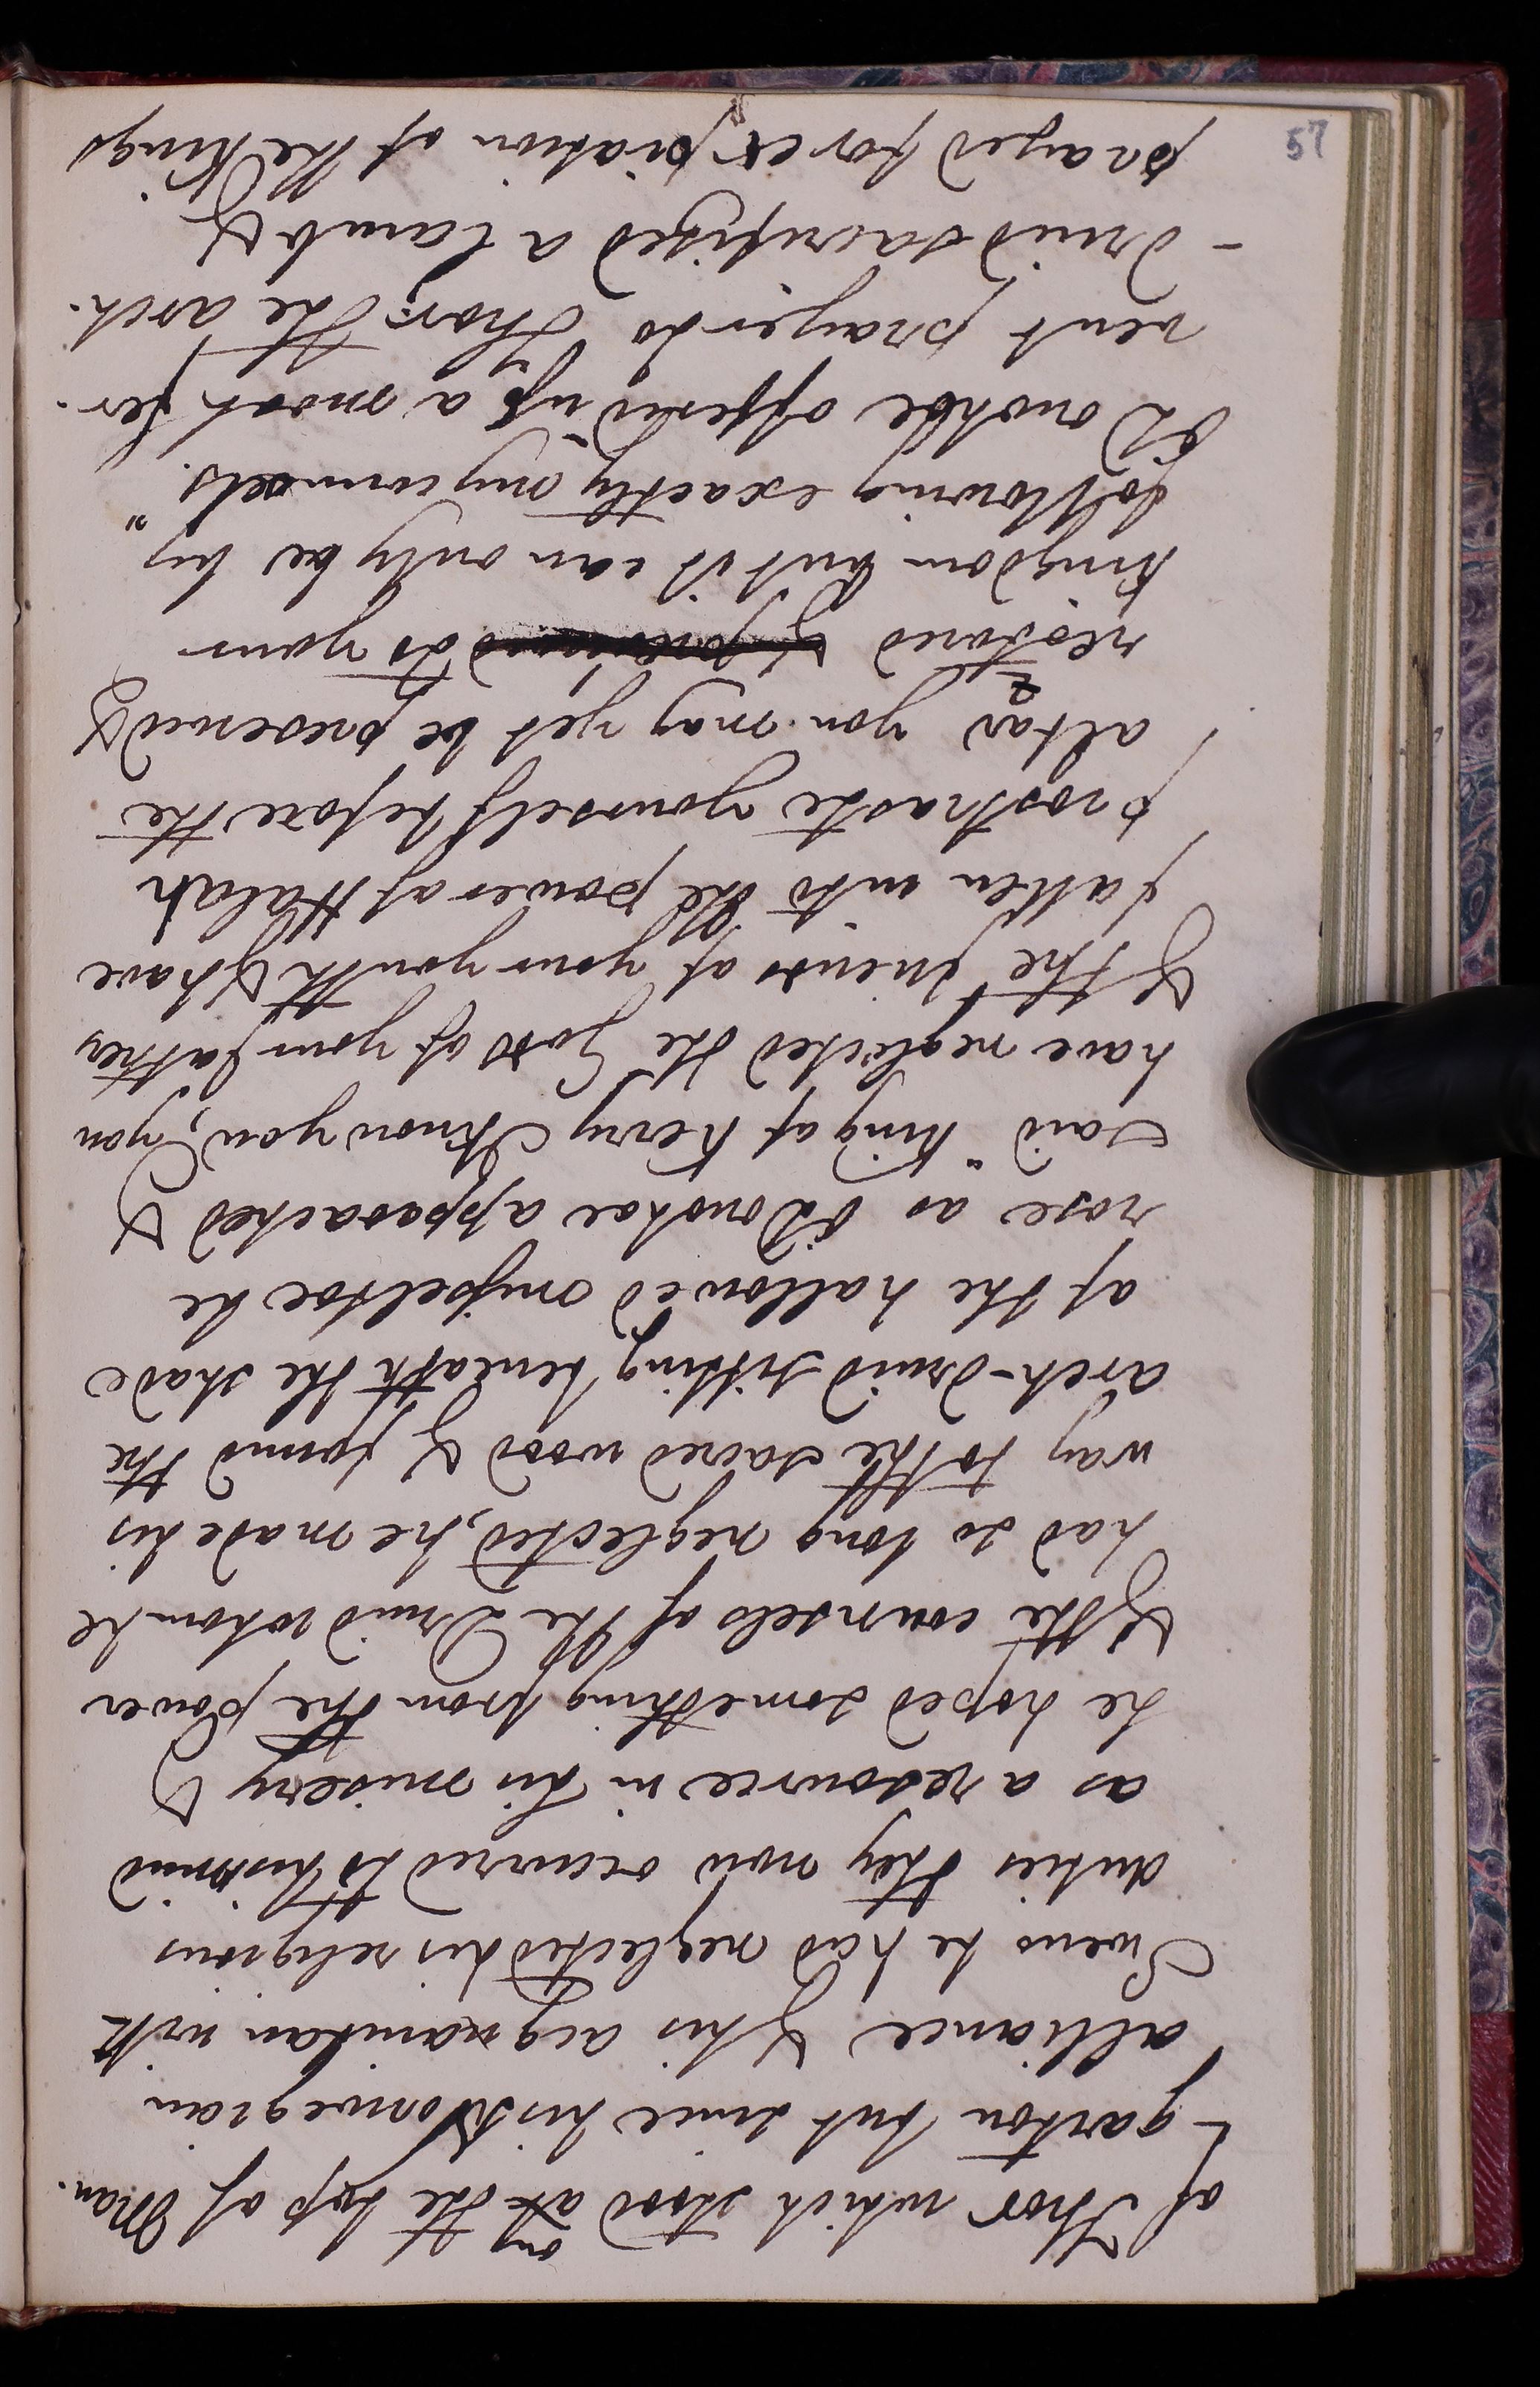 of Thor which stood on the top of Man-
-garton but since his Norwegian
alliance & his acquaintan with
Sweno he had neglected his religious
duties they now occurred to his mind
as a resource in his misery &
he hoped something from the power
& the counsels of the Druid whom he
had so long neglected, he made his
way to the sacred wood & found the
arch-druid sitting beneath the shade
of the hallowed misseltoe he
rose as O'Donohoe approached &
said "King of Kerry I know you, you
have neglected the Gods of your fathers
& the friends of your youth & have
fallen into the power of
prostrate yourself before the
altar you may yet be preserved &
restored to your
kingdom but it can only be by
following exactly my counsels."
O'Donohoe offered up a most fer-
vent prayer to Thor; the arch-
-druid sacrifized a lamb &
prayed for expiation of the Kings
57